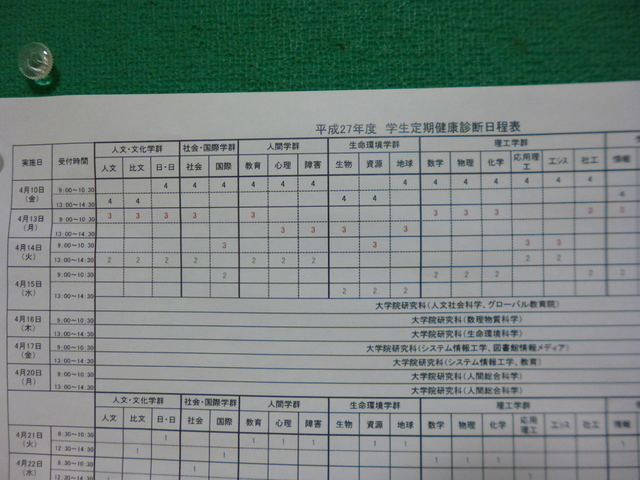 平成27年度 学生定期健康診断日程表
実施日 受付時間 人文・文化学群 社会・国際学群 人間学群 生命環境学群 理工学群
人文 比文 日・日 社会 国際 教育 心理 障害 生物 資源 地球 数学 物理 化学 応用理工 エシス 社工 情報
4月10日(金) 9:00～10:30 4 4 4 4 4 4 4 4 4 4 4 4 4
13:00～14:30 4 4 4 4 4
4月13日(月) 9:00～10:30 3 3 3 3 3 3 3 3
13:00～14:30 3 3 3 3
4月14日(火) 9:00～10:30 3 3 3 3
13:00～14:30 2 2 2 2 2 2 2 2 2
4月15日(水) 9:00～10:30 2 2 2 2 2
13:00～14:30 2 2 2
大学院研究科(人文社会科学、グローバル教育院)
4月16日(木) 9:00～10:30 大学院研究科(数理物質科学)
13:00～14:30 大学院研究科(生命環境科学)
4月17日(金) 9:00～10:30 大学院研究科(システム情報工学、図書館情報メディア)
13:00～14:30 大学院研究科(システム情報工学、教育)
4月20日(月) 9:00～10:30 大学院研究科(人間総合科学)
13:00～14:30 大学院研究科(人間総合科学)
人文・文化学群 社会・国際学群 人間学群 生命環境学群 理工学群
人文 比文 日・日 社会 国際 教育 心理 障害 生物 資源 地球 数学 物理 化学 応用理工 エシス 社工 情報
4月21日(火) 8:30～10:30 1 1 1 1 1 1
12:30～14:30 1 1
4月22日(水) 8:30～10:30 1 1 1
12:30～14:30 1